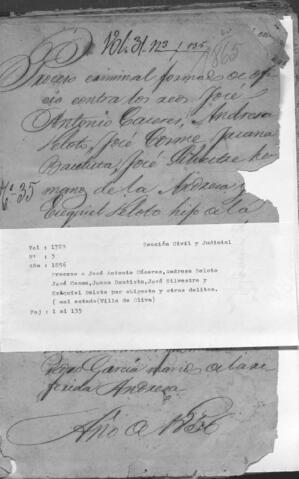 Vol. 31. nº 3 / 035
1865
Proceso criminal formado de ofi
cio contra los reos José
Antonio Caseres, Andresa
Seloto, José Cosme, Juana
Bautista, José Silvestre her
mano de la Andresa, y
Nº 35
Esequiel Seloto hijo de la
Vol : 1509
Sección Civil y Judicial
Nº : 3
Año : 1856
Proceso a José Antonio Cáseres, Andresa Selote
José Cosme, Juana Bautista, José Silvestre y
Ezequiel Selote por abigeato y otros delitos.
( mal estado(Villa de Oliva)
Paj : 1 al 135
Pedro Garcia marido de la re
ferida Andresa
Año de 1856